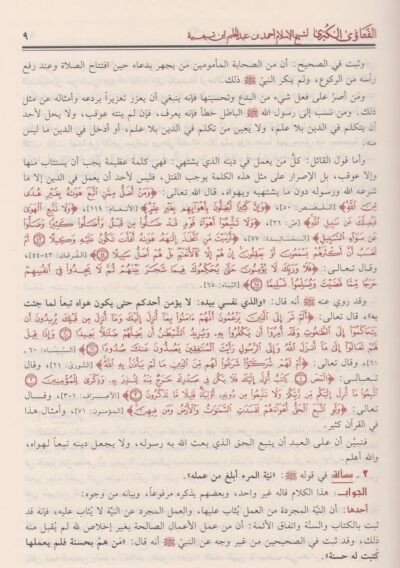 الفتاوى الكبرى لشيخ الإسلام أحمد بن عبد الحليم ابن تيمية ٩
وثبت في الصحيح: أن من الصحابة المأمومين من يجهر بدعاء حين افتتاح الصلاة وعند رفع
رأسه من الركوع، ولم ينكر النبيّ ﷺ ذلك.
ومن أصرّ على فعل شيء من البدع وتحسينها فإنه ينبغي أن يعزّر تعزيراً يردعه وأمثاله عن مثل
ذلك. ومن نسب إلى رسول الله ﷺ الباطل خطأ فإنه يعرف، فإن لم ينته عوقب، ولا يحل لأحد
أن يتكلم في الدين بلا علم، ولا يعين من تكلم في الدين بلا علم، أو أدخل في الدين ما ليس
منه.
وأما قول القائل: كلّ من يعمل في دينه الذي يشتهي: فهي كلمة عظيمة يجب أن يستتاب منها
وإلا عوقب، بل الإصرار على مثل هذه الكلمة يوجب القتل، فليس لأحد أن يعمل في الدين إلا ما
شرعه الله ورسوله دون ما يشتهيه ويهواه، قال الله تعالى: ﴿وَمَنْ أَضَلُّ مِمَّنِ اتَّبَعَ هَوَاهُ بِغَيْرِ هُدًى
مِنَ اللَّهِ﴾ [القصص: ٥٠]، ﴿وَإِنَّ كَثِيرًا لَيُضِلُّونَ بِأَهْوَائِهِمْ بِغَيْرِ عِلْمٍ﴾ [الأنعام: ١١٩]، ﴿وَلَا تَتَّبِعِ الْهَوَى
فَيُضِلَّكَ عَنْ سَبِيلِ اللَّهِ﴾ [ص: ٢٦]، ﴿وَلَا تَتَّبِعُوا أَهْوَاءَ قَوْمٍ قَدْ ضَلُّوا مِنْ قَبْلُ وَأَضَلُّوا كَثِيرًا وَضَلُّوا
عَنْ سَوَاءِ السَّبِيلِ﴾ [المائدة: ٧٧]، ﴿أَرَأَيْتَ مَنِ اتَّخَذَ إِلَهَهُ هَوَاهُ أَفَأَنْتَ تَكُونُ عَلَيْهِ وَكِيلًا ٤٣ أَمْ
تَحْسَبُ أَنَّ أَكْثَرَهُمْ يَسْمَعُونَ أَوْ يَعْقِلُونَ إِنْ هُمْ إِلَّا كَالْأَنْعَامِ بَلْ هُمْ أَضَلُّ سَبِيلًا ٤٤﴾ [الفرقان: ٤٣-٤٤]،
وقال تعالى: ﴿فَلَا وَرَبِّكَ لَا يُؤْمِنُونَ حَتَّى يُحَكِّمُوكَ فِيمَا شَجَرَ بَيْنَهُمْ ثُمَّ لَا يَجِدُوا فِي أَنْفُسِهِمْ
حَرَجًا مِمَّا قَضَيْتَ وَيُسَلِّمُوا تَسْلِيمًا ٦٥﴾ [النساء: ٦٥].
وقد روي عنه ﷺ أنه قال: «والذي نفسي بيده: لا يؤمن أحدكم حتى يكون هواه تبعاً لما جئت
به»، قال تعالى: ﴿أَلَمْ تَرَ إِلَى الَّذِينَ يَزْعُمُونَ أَنَّهُمْ آمَنُوا بِمَا أُنْزِلَ إِلَيْكَ وَمَا أُنْزِلَ مِنْ قَبْلِكَ يُرِيدُونَ أَنْ
يَتَحَاكَمُوا إِلَى الطَّاغُوتِ وَقَدْ أُمِرُوا أَنْ يَكْفُرُوا بِهِ، وَيُرِيدُ الشَّيْطَانُ أَنْ يُضِلَّهُمْ ضَلَالًا بَعِيدًا ٦٠ وَإِذَا قِيلَ
لَهُمْ تَعَالَوْا إِلَى مَا أَنْزَلَ اللَّهُ وَإِلَى الرَّسُولِ رَأَيْتَ الْمُنَافِقِينَ يَصُدُّونَ عَنْكَ صُدُودًا ٦١﴾ [النساء: ٦٠ـ
٦١]، وقال تعالى: ﴿أَمْ لَهُمْ شُرَكَاءُ شَرَعُوا لَهُمْ مِنَ الدِّينِ مَا لَمْ يَأْذَنْ بِهِ اللَّهُ﴾ [الشورى: ٢١]، وقال
تعالى: ﴿المص ١ كِتَابٌ أُنْزِلَ إِلَيْكَ فَلَا يَكُنْ فِي صَدْرِكَ حَرَجٌ مِنْهُ لِتُنْذِرَ بِهِ، وَذِكْرَى لِلْمُؤْمِنِينَ ٢
اتَّبِعُوا مَا أُنْزِلَ إِلَيْكُمْ مِنْ رَبِّكُمْ وَلَا تَتَّبِعُوا مِنْ دُونِهِ، أَوْلِيَاءَ قَلِيلًا مَا تَذَكَّرُونَ ٣﴾ [الأعراف: ١-٣]، وقال
تعالى: ﴿وَلَوِ اتَّبَعَ الْحَقُّ أَهْوَاءَهُمْ لَفَسَدَتِ السَّمَاوَاتُ وَالْأَرْضُ وَمَنْ فِيهِنَّ﴾ [المؤمنون: ٧١]، وأمثال هذا
في القرآن كثير.
فتبيّن أن على العبد أن يتبع الحق الذي بعث الله به رسوله، ولا يجعل دينه تبعاً لهواه،
والله أعلم.
٢ ـ مسألة: في قوله ﷺ: «نيّة المرء أبلغ من عمله».
الجواب: هذا الكلام قاله غير واحد، وبعضهم يذكره مرفوعاً، وبيانه من وجوه:
أحدها: أن النيّة المجردة من العمل يُثاب عليها، والعمل المجرد عن النيّة لا يُثاب عليه، فإنه قد
ثبت بالكتاب والسنّة واتفاق الأئمة: أن من عمل الأعمال الصالحة بغير إخلاص لله لم يُقبل منه
ذلك، وقد ثبت في الصحيحين من غير وجه عن النبيّ ﷺ أنه قال: «مَن همّ بحسنة فلم يعملها
كُتبت له حسنة».